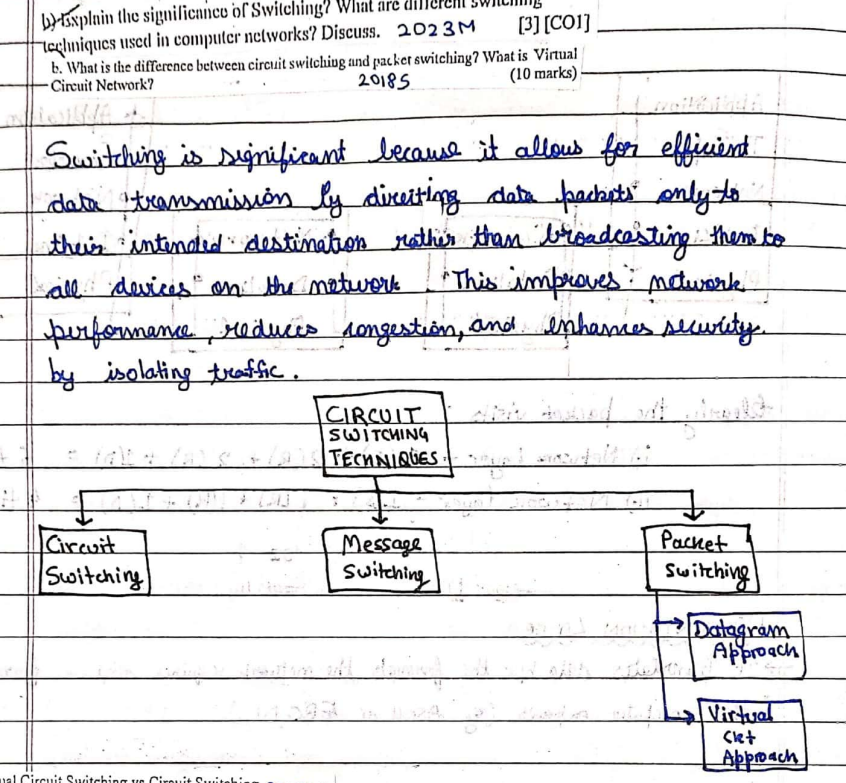 b) Explain the significance of Switching? What are different switching
techniques used in computer networks? Discuss. 2023M [3] [CO1]
b. What is the difference between circuit switching and packet switching? What is Virtual
Circuit Network? 2018S (10 marks)
Switching is significant because it allows for efficient
data transmission by directing data packets only to
their intended destination rather than broadcasting them to
all devices on the network. This improves network
performance, reduces congestion, and enhances security
by isolating traffic.
CIRCUIT
SWITCHING
TECHNIQUES
Circuit
Switching
Message
Switching
Packet
Switching
Datagram
Approach
Virtual
Ckt
Approach
Circuit Switching vs Circuit Switching